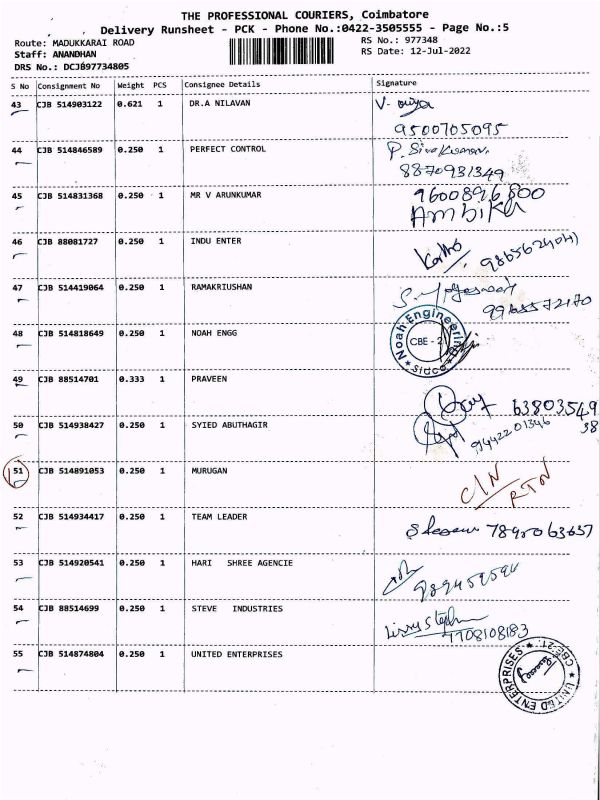 THE PROFESSIONAL COURIERS, Coimbatore
Delivery Runsheet - PCK - Phone No.:0422-3505555 - Page No.:5
Route: MADUKKARAI ROAD
RS No.: 977348
Staff: ANANDHAN
RS Date: 12-Jul-2022
DRS No.: DCJB97734805
S No Consignment No Weight PCS Consignee Details Signature
43 CJB 514903122 0.621 1 DR.A NILAVAN
9500705095
44 CJB 514846589 0.250 1 PERFECT CONTROL P. Sivakumar
8870931349
45 CJB 514831368 0.250 1 MR V ARUNKUMAR 9600896800
Ambika
46 CJB 88081727 0.250 1 INDU ENTER
47 CJB 514419064 0.250 1 RAMAKRIUSHAN
9965572170
48 CJB 514818649 0.250 1 NOAH ENGG Noah Engineering CBE - 2 Sidco
49 CJB 88514701 0.333 1 PRAVEEN 63803549
38
50 CJB 514938427 0.250 1 SYIED ABUTHAGIR 9442201346
51 CJB 514891053 0.250 1 MURUGAN C/N
RTN
52 CJB 514934417 0.250 1 TEAM LEADER
53 CJB 514920541 0.250 1 HARI SHREE AGENCIE
54 CJB 88514699 0.250 1 STEVE INDUSTRIES
7708108183
55 CJB 514874804 0.250 1 UNITED ENTERPRISES UNITED ENTERPRISES CBE-21